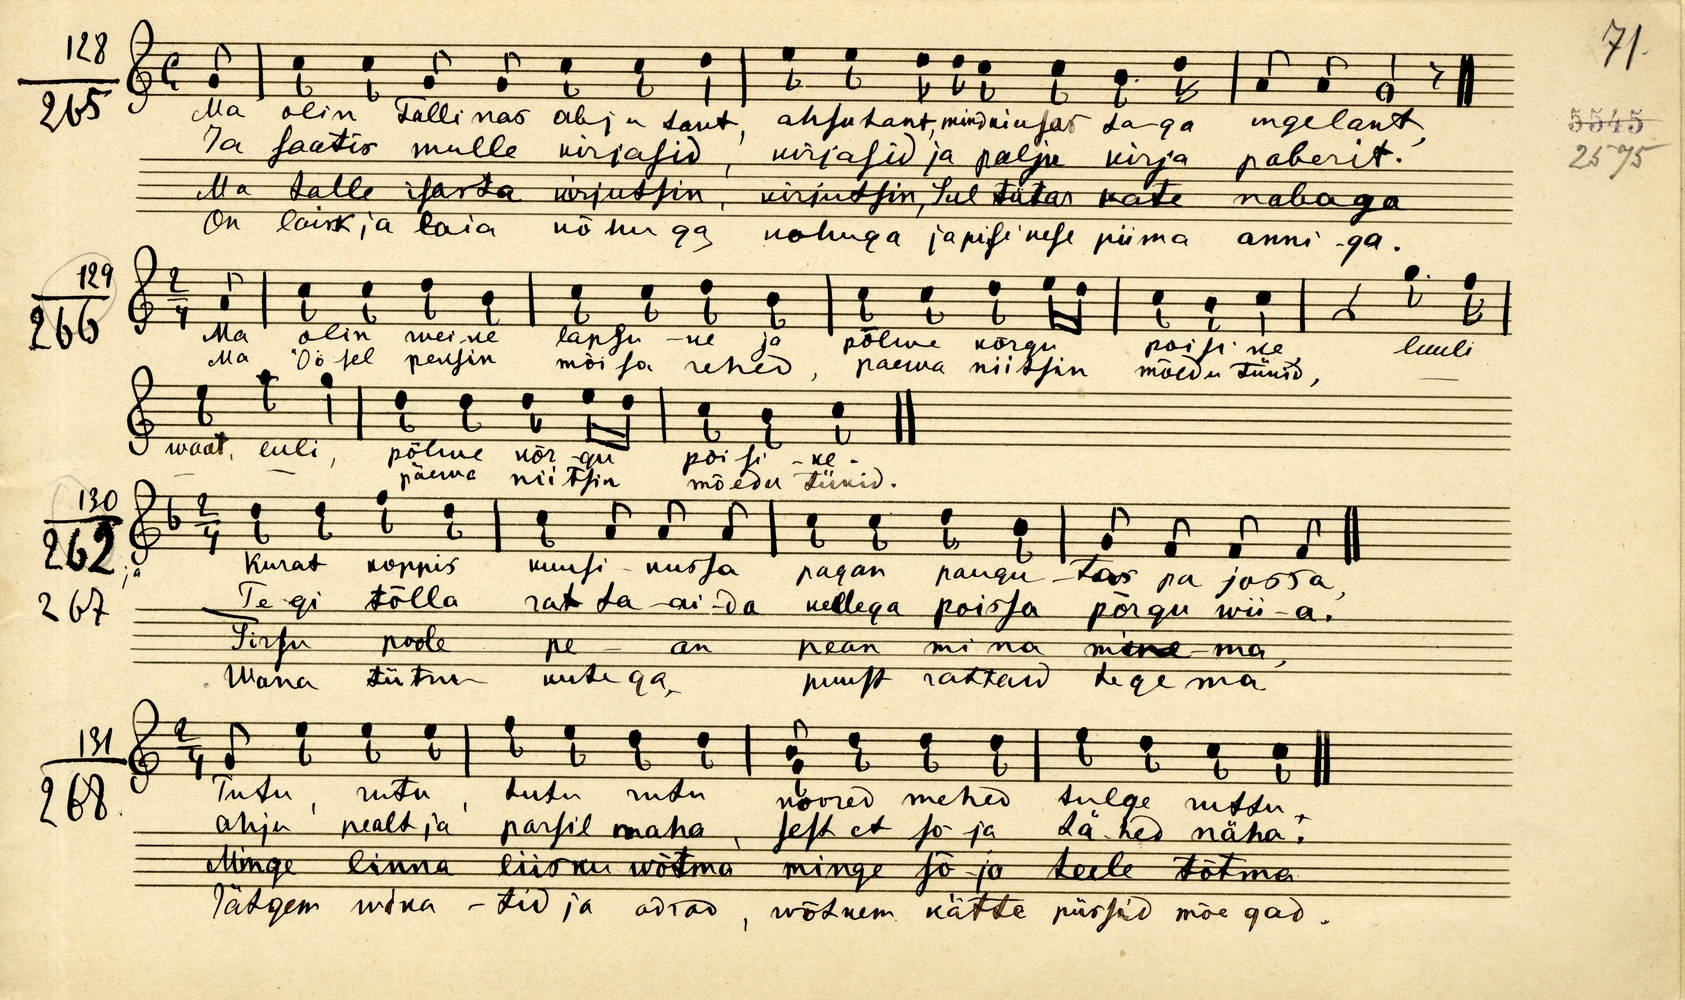 71.
5545
2575
128
265
Ma olin Tallinas abjutant, ahjutant, mind niusas taga ingelant,
Ja saatis mulle kirjasid, kirjasid ja palju kirja paberit.
Ma talle isasta kirjutsin, kirjutsin, Sul tütar kate nabaga
On laisk ja laia kõhuga kohuga ja pisikese piima anni-ga.
129
266
Ma olin weine lapsu-ke ja põlwe kõrgu poisike luuli
Ma Öösel peksin mõisa rehed, paewa niitsin mõedu tükid,
waat, euli, põlwe kõr-gu poisi-ke.
päewa niitsin mõedu tükid.
130
262
267
Kurat koppis kuusi-kussa pagan paugu-tas pa jossa,
ja
Te gi tõlla rat ta-ai-da kellega poissa põrgu wii-a.
Sirsu poole pe-an pean mi na mine-ma,
Wana tütru kutega, puust rattaid tegema
131
268.
Tutu, rutu, tutu rutu noored mehed tulge ruttu,
ahju pealt ja parsil maha, sest et sõ-ja tä-hed näha.
Minge linna liisku wõtma minge sõ-ja teele tõtma
Jätgem wika-tid ja adrad, wõtkem kätte püssid mõegad.